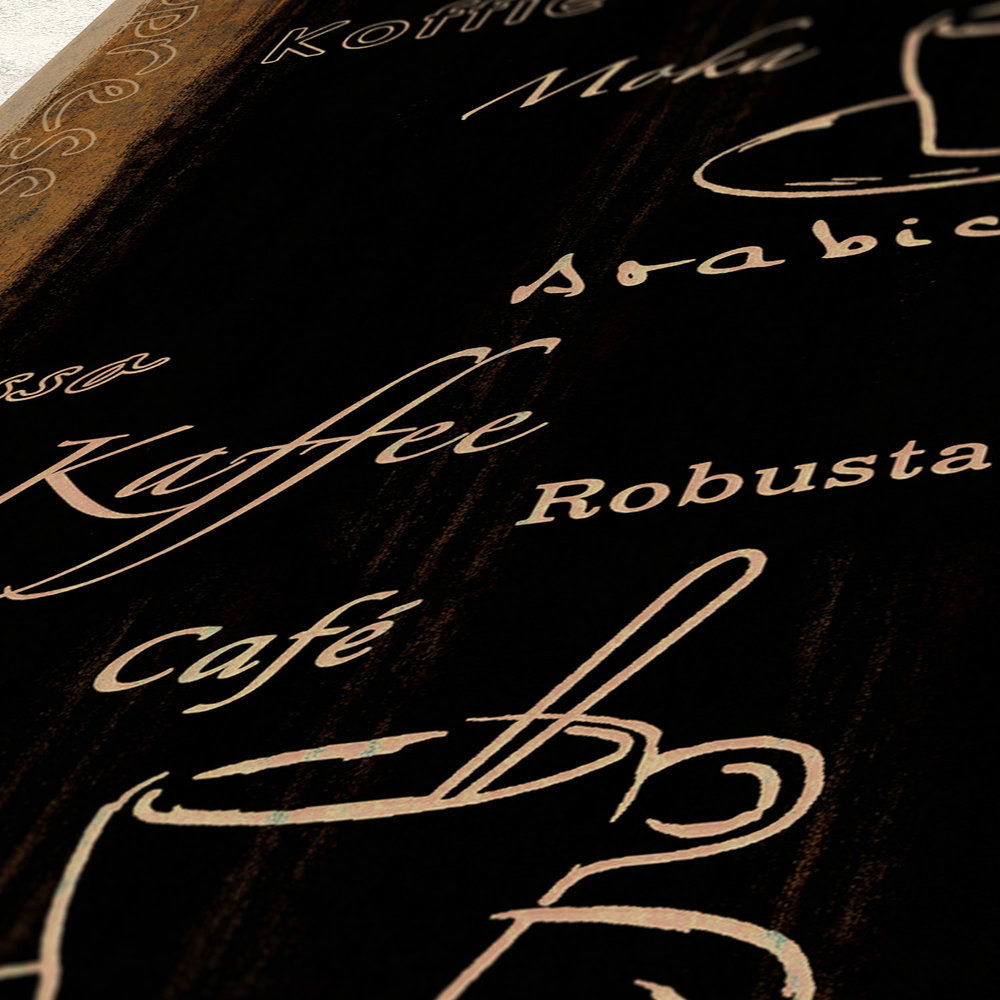 press
Koffie
Moka
Arabic
ssa
Kaffee
Robusta
Café